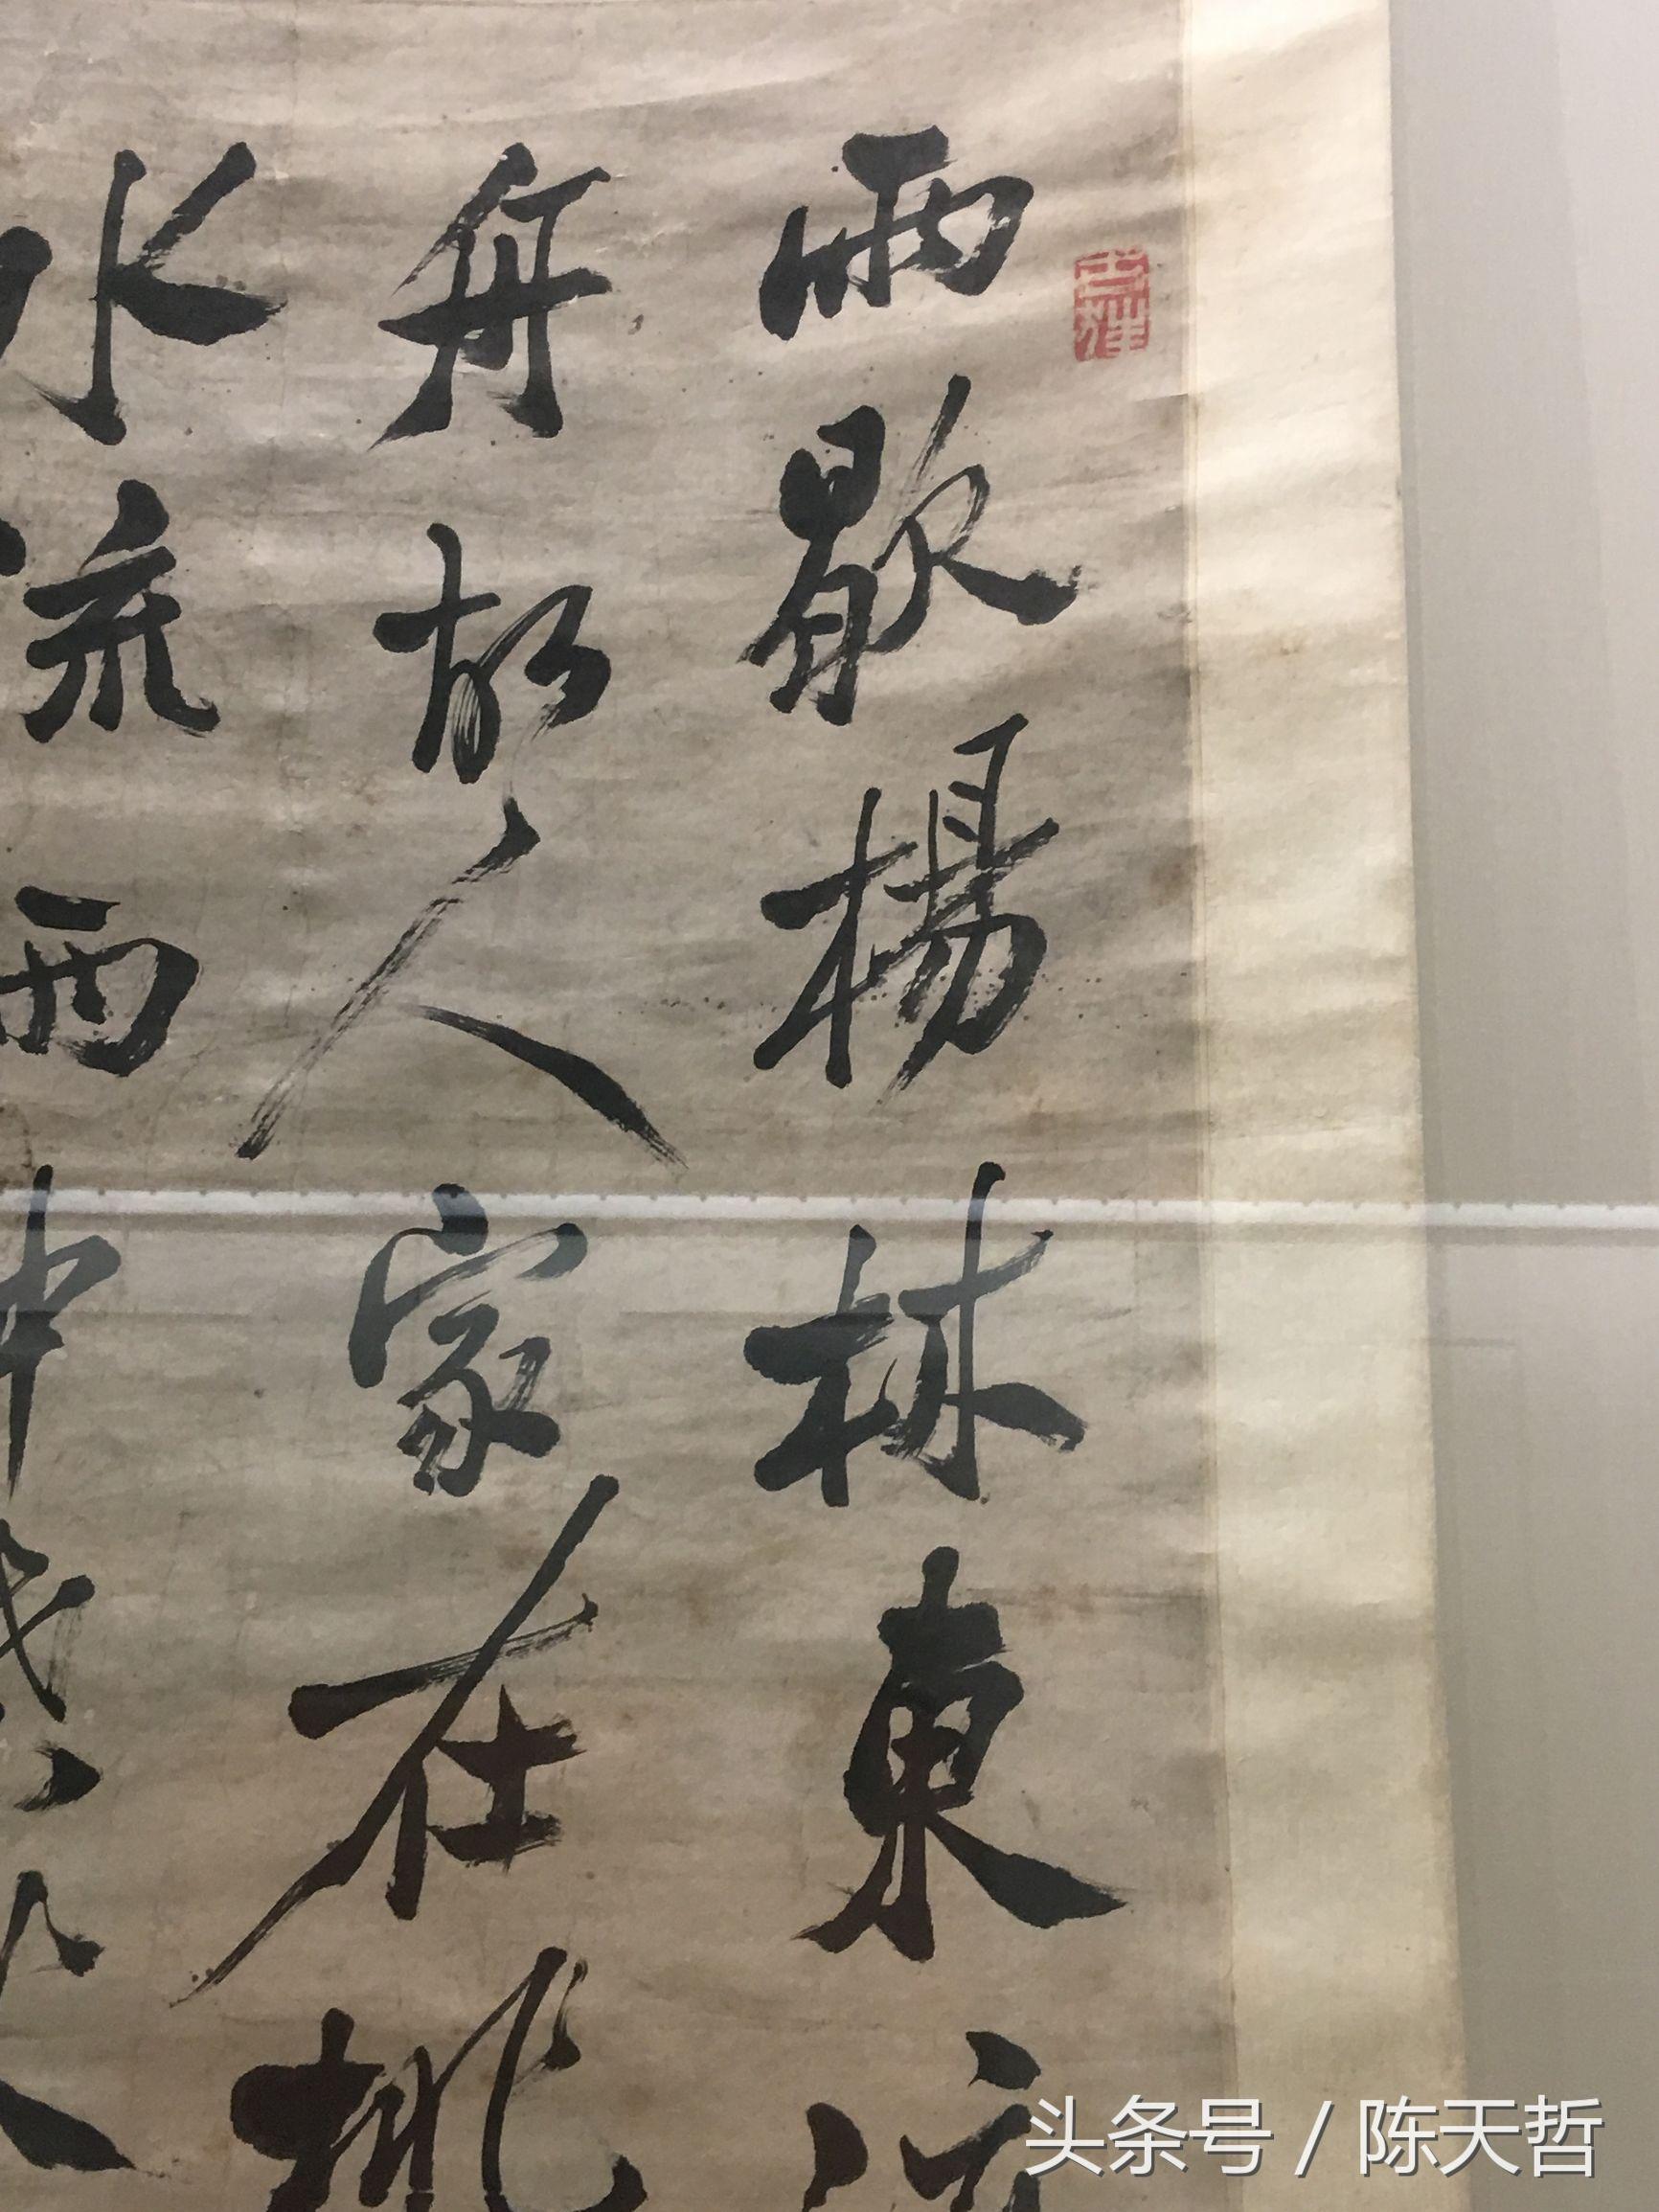 雨歇楊林東
舟故人家在桃
水流丙申
头条号 / 陈天哲